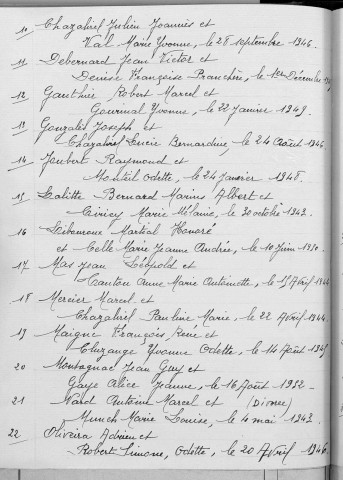 10 Chazabriel Julien Joannès et
Val Marie Yvonne, le 28 septembre 1946.
11 Debernard Jean Victor et
Denise Françoise Blanchin, le 1er Décembre
12 Gauthier Robert Marcel et
Gourinal Yvonne, le 22 Janvier 1949.
13 Gonzalès Joseph et
Chazabriel Lucie Bernardine, le 24 Août 1946
14 Joubert Raymond et
Monteil Odette, le 24 Janvier 1948.
15 Lalitte Bernard Marius Albert et
Marie Mélanie, le 30 octobre 1943.
16 Martial Honoré
et Celle Marie Jeanne Andrée, le 10 Juin 1950.
17 Mas Jean Léopold et
Canton Anne Marie Antoinette, le 15 Avril 1944
18 Mercier Marcel et
Chazabriel Pauline Marie, le 22 Avril 1944.
19 Maigne François René et
Cluzange Yvonne Odette, le 14 Août 1945
20 Montagnac Jean Guy et
Gaye Alice Jeanne, le 16 Août 1952 -
21 Nard Antoine Marcel et (Divorcé)
Munch Marie Louise, le 4 mai 1943.
22 Oliveira Adrien et
Robert Simone, Odette, le 20 Avril 1946.